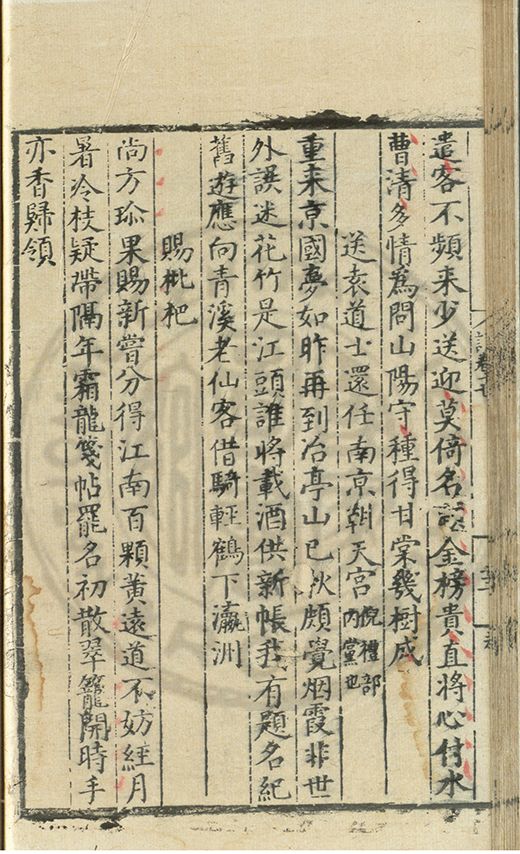 遣客不頻来少送迎莫倚名註金榜貴直將心付水
曹清多情為問山陽守種得甘棠幾樹成
送袁道士還任南京朝天宮倪禮部内黨也
重来京國夢如昨再到冶亭山已秋頗覺烟霞非世
外誤迷花竹是江頭誰將載酒供新帳我有題名紀
舊遊應向青溪老仙客借騎輕鶴下瀛洲
賜枇杷
尚方珎果賜新嘗分得江南百顆黄遠道不妨經月
暑冷枝疑帶隔年霜龍箋帖罷名初散翠籠開時手
亦香歸領